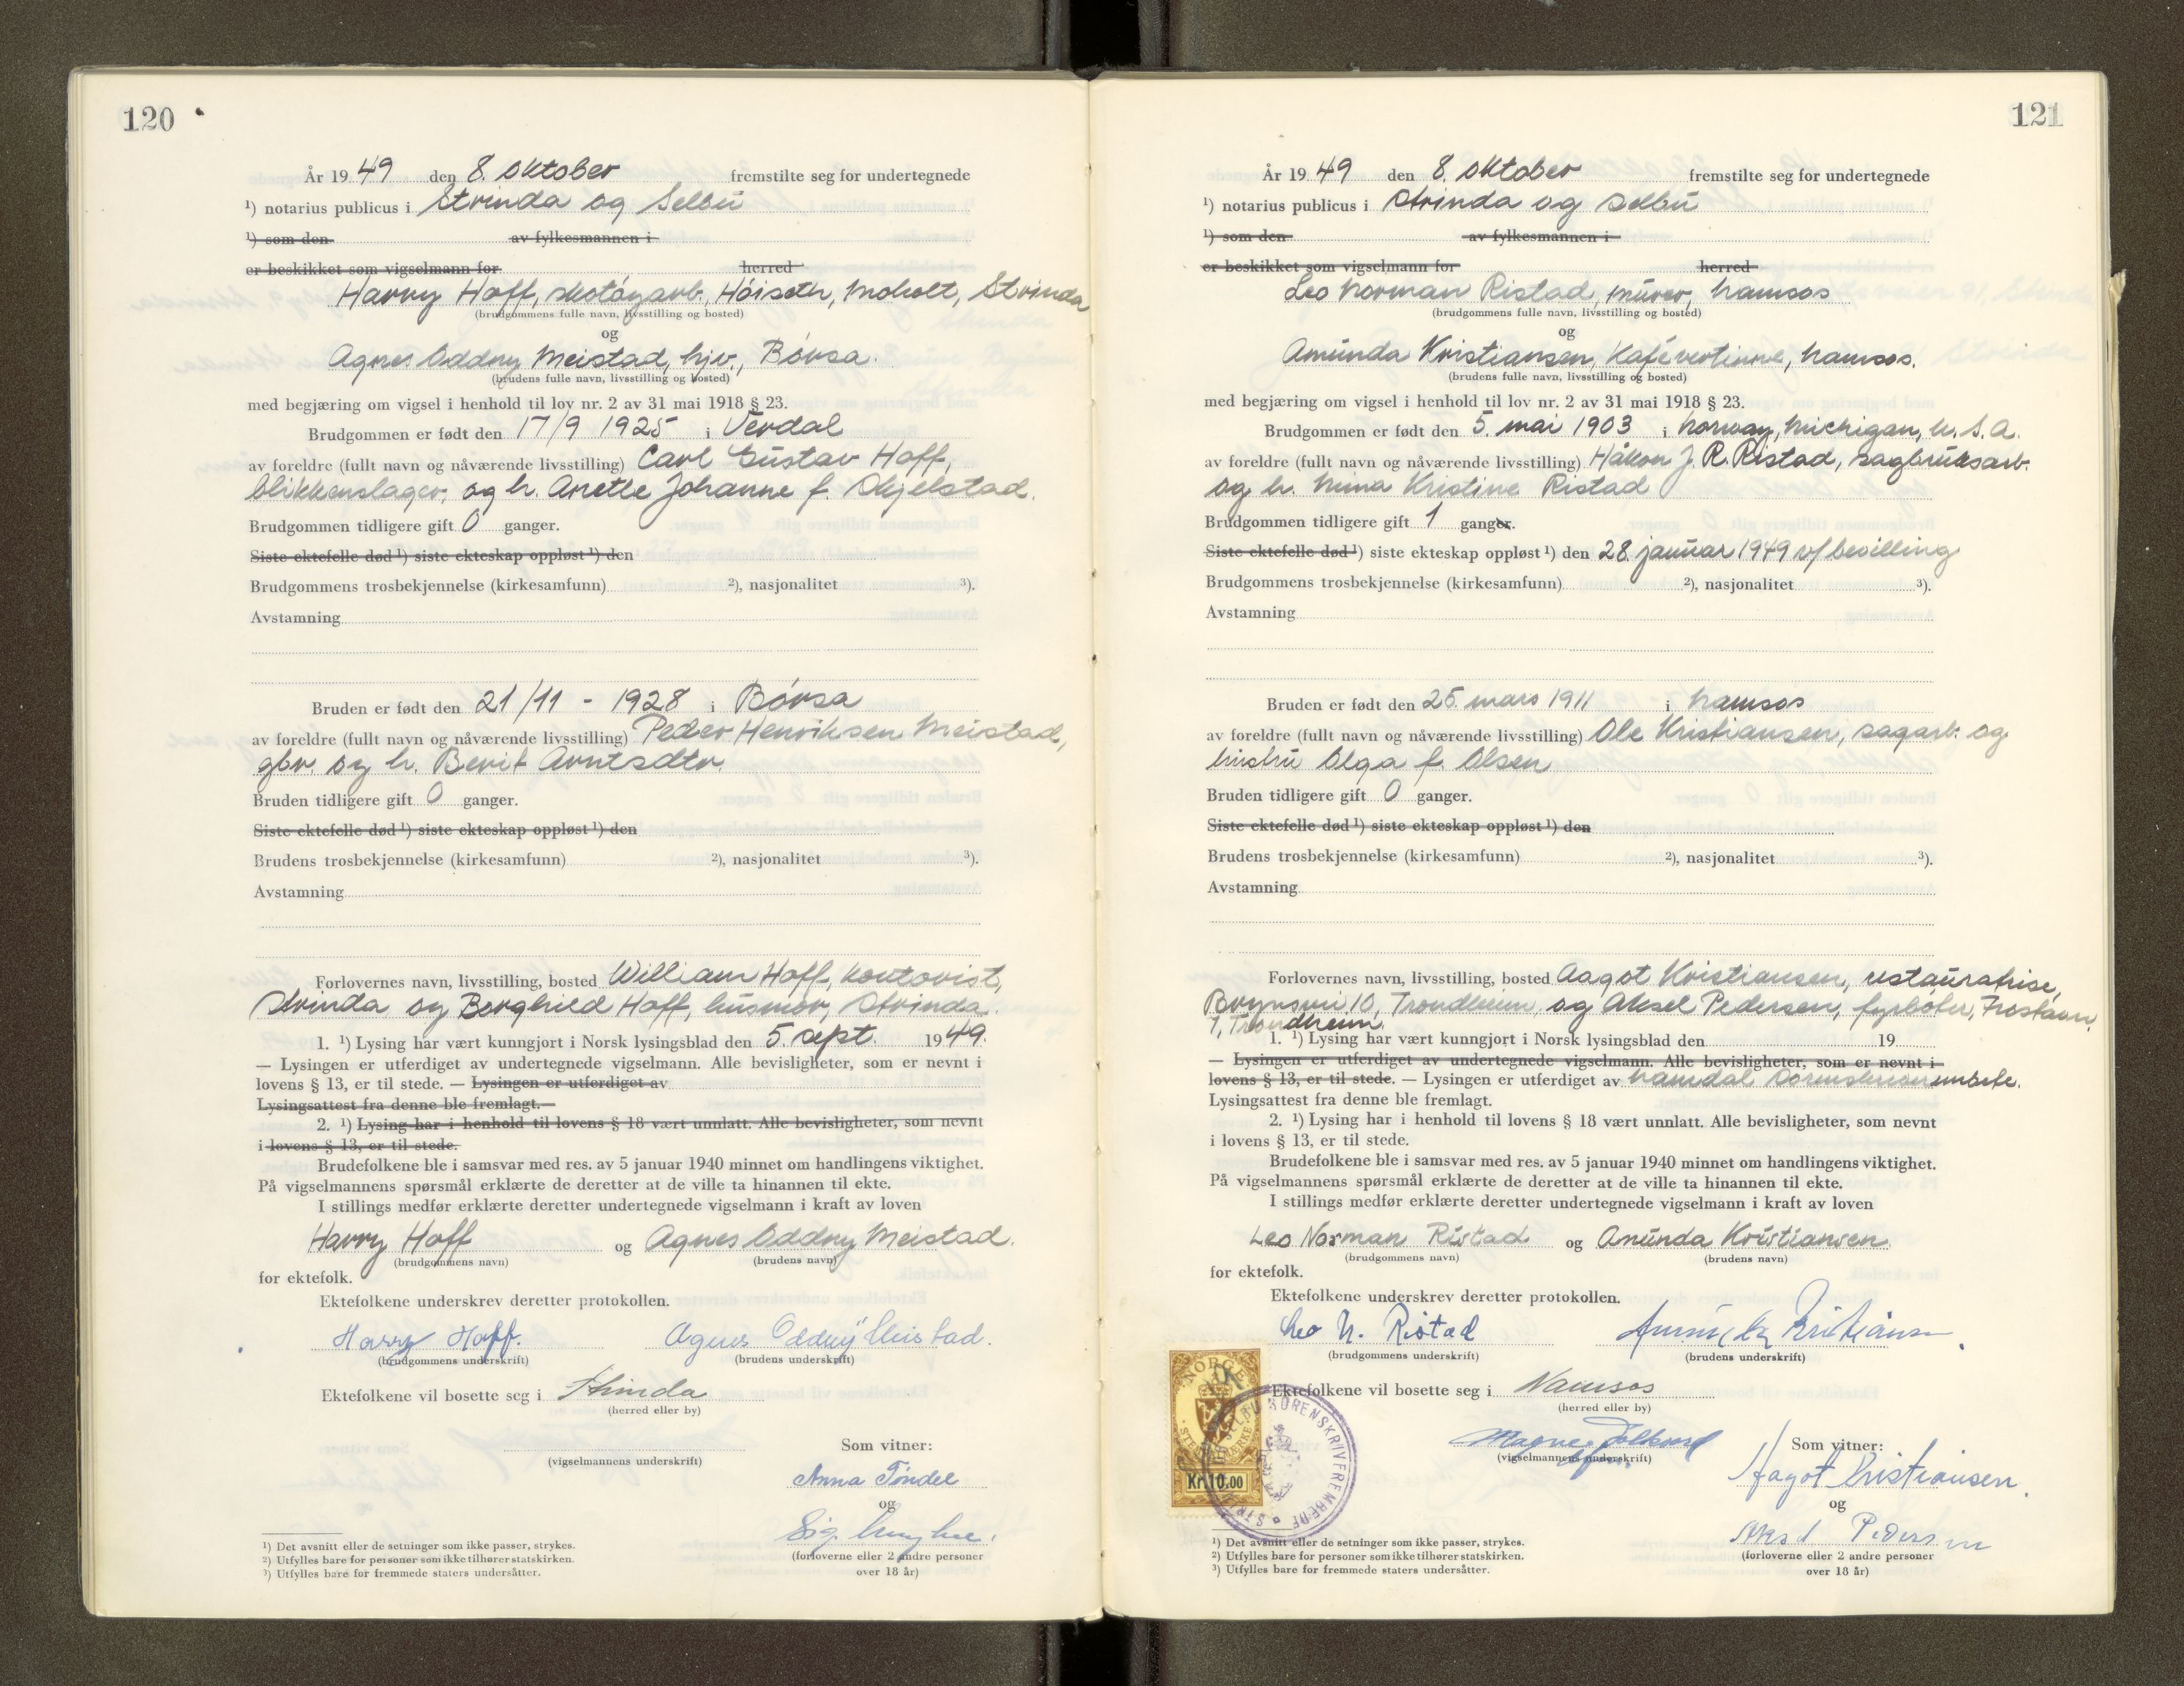 120
År 1949 den 8. oktober fremstilte seg for undertegnede
¹) notarius publicus i Strinda og Selbu
¹) som den av fylkesmannen i
er beskikket som vigselmann for herred
Harry Hoff, skotøyarb., Höiseth, Moholt, Strinda
(brudgommens fulle navn, livsstilling og bosted)
og
Agnes Oddny Meistad, hjv., Börsa.
(brudens fulle navn, livsstilling og bosted)
med begjæring om vigsel i henhold til lov nr. 2 av 31 mai 1918 § 23.
Brudgommen er født den 17/9 1925 i Verdal
av foreldre (fullt navn og nåværende livsstilling) Carl Gustav Hoff,
blikkenslager, og h. Anette Johanne f. Okjelstad.
Brudgommen tidligere gift 0 ganger.
Siste ektefelle død ¹) siste ekteskap oppløst ¹) den
Brudgommens trosbekjennelse (kirkesamfunn) ²), nasjonalitet ³).
Avstamning
Bruden er født den 21/11 - 1928 i Börsa
av foreldre (fullt navn og nåværende livsstilling) Peder Henriksen Meistad,
gbr. og h. Berit Arntsdtr.
Bruden tidligere gift 0 ganger.
Siste ektefelle død ¹) siste ekteskap oppløst ¹) den
Brudens trosbekjennelse (kirkesamfunn) ²), nasjonalitet ³).
Avstamning
Forlovernes navn, livsstilling, bosted William Hoff, kontorist,
Strinda og Borghild Hoff, husmor, Strinda.
1. ¹) Lysing har vært kunngjort i Norsk lysingsblad den 5. sept. 1949.
— Lysingen er utferdiget av undertegnede vigselmann. Alle bevisligheter, som er nevnt i
lovens § 13, er til stede. — Lysingen er utferdiget av
Lysingsattest fra denne ble fremlagt.—
2. ¹) Lysing har i henhold til lovens § 18 vært unnlatt. Alle bevisligheter, som nevnt
i lovens § 13, er til stede.
Brudefolkene ble i samsvar med res. av 5 januar 1940 minnet om handlingens viktighet.
På vigselmannens spørsmål erklærte de deretter at de ville ta hinannen til ekte.
I stillings medfør erklærte deretter undertegnede vigselmann i kraft av loven
Harry Hoff og Agnes Oddny Meistad.
(brudgommens navn) (brudens navn)
for ektefolk.
Ektefolkene underskrev deretter protokollen.
Harry Hoff. Agnes Oddny Meistad.
(brudgommens underskrift) (brudens underskrift)
Ektefolkene vil bosette seg i Strinda
(herred eller by)
Som vitner:
(vigselmannens underskrift)
Anna Töndel
og
Sig.
(forloverne eller 2 andre personer
over 18 år)
¹) Det avsnitt eller de setninger som ikke passer, strykes.
²) Utfylles bare for personer som ikke tilhører statskirken.
³) Utfylles bare for fremmede staters undersåtter.
121
År 1949 den 8. oktober fremstilte seg for undertegnede
¹) notarius publicus i Strinda og Selbu
¹) som den av fylkesmannen i
er beskikket som vigselmann for herred
Leo Norman Ristad, murer, Namsos
(brudgommens fulle navn, livsstilling og bosted)
og
Amunda Kristiansen, Kafévertinne, Namsos.
(brudens fulle navn, livsstilling og bosted)
med begjæring om vigsel i henhold til lov nr. 2 av 31 mai 1918 § 23.
Brudgommen er født den 5. mai 1903 i Norway, Michigan, U.S.A.
av foreldre (fullt navn og nåværende livsstilling) Håkon J. R. Ristad, sagbruksarb.
og h. Nina Kristine Ristad
Brudgommen tidligere gift 1 ganger.
Siste ektefelle død ¹) siste ekteskap oppløst ¹) den 28. januar 1949 v/ bevilling
Brudgommens trosbekjennelse (kirkesamfunn) ²), nasjonalitet ³).
Avstamning
Bruden er født den 25. mars 1911 i Namsos
av foreldre (fullt navn og nåværende livsstilling) Ole Kristiansen, sagarb. og
hustru Olga f. Olsen
Bruden tidligere gift 0 ganger.
Siste ektefelle død ¹) siste ekteskap oppløst ¹) den
Brudens trosbekjennelse (kirkesamfunn) ²), nasjonalitet ³).
Avstamning
Forlovernes navn, livsstilling, bosted Aagot Kristiansen, restauratrise,
10, Trondheim, og Aksel Pedersen, fyrböter,
7, Trondheim.
1. ¹) Lysing har vært kunngjort i Norsk lysingsblad den 19
— Lysingen er utferdiget av undertegnede vigselmann. Alle bevisligheter, som er nevnt i
lovens § 13, er til stede. — Lysingen er utferdiget av Namdal sorenskriverembete.
Lysingsattest fra denne ble fremlagt.
2. ¹) Lysing har i henhold til lovens § 18 vært unnlatt. Alle bevisligheter, som nevnt
i lovens § 13, er til stede.
Brudefolkene ble i samsvar med res. av 5 januar 1940 minnet om handlingens viktighet.
På vigselmannens spørsmål erklærte de deretter at de ville ta hinannen til ekte.
I stillings medfør erklærte deretter undertegnede vigselmann i kraft av loven
Leo Norman Ristad og Amunda Kristiansen
(brudgommens navn) (brudens navn)
for ektefolk.
Ektefolkene underskrev deretter protokollen.
Leo N. Ristad Amunda Kristiansen.
(brudgommens underskrift) (brudens underskrift)
Ektefolkene vil bosette seg i Namsos
(herred eller by)
NORGE
Kr. 10.00
SORENSKRIVEREMBEDE
Magne
(vigselmannens underskrift)
Som vitner:
Aagot Kristiansen.
og
Aksel Pedersen
(forloverne eller 2 andre personer
over 18 år)
¹) Det avsnitt eller de setninger som ikke passer, strykes.
²) Utfylles bare for personer som ikke tilhører statskirken.
³) Utfylles bare for fremmede staters undersåtter.